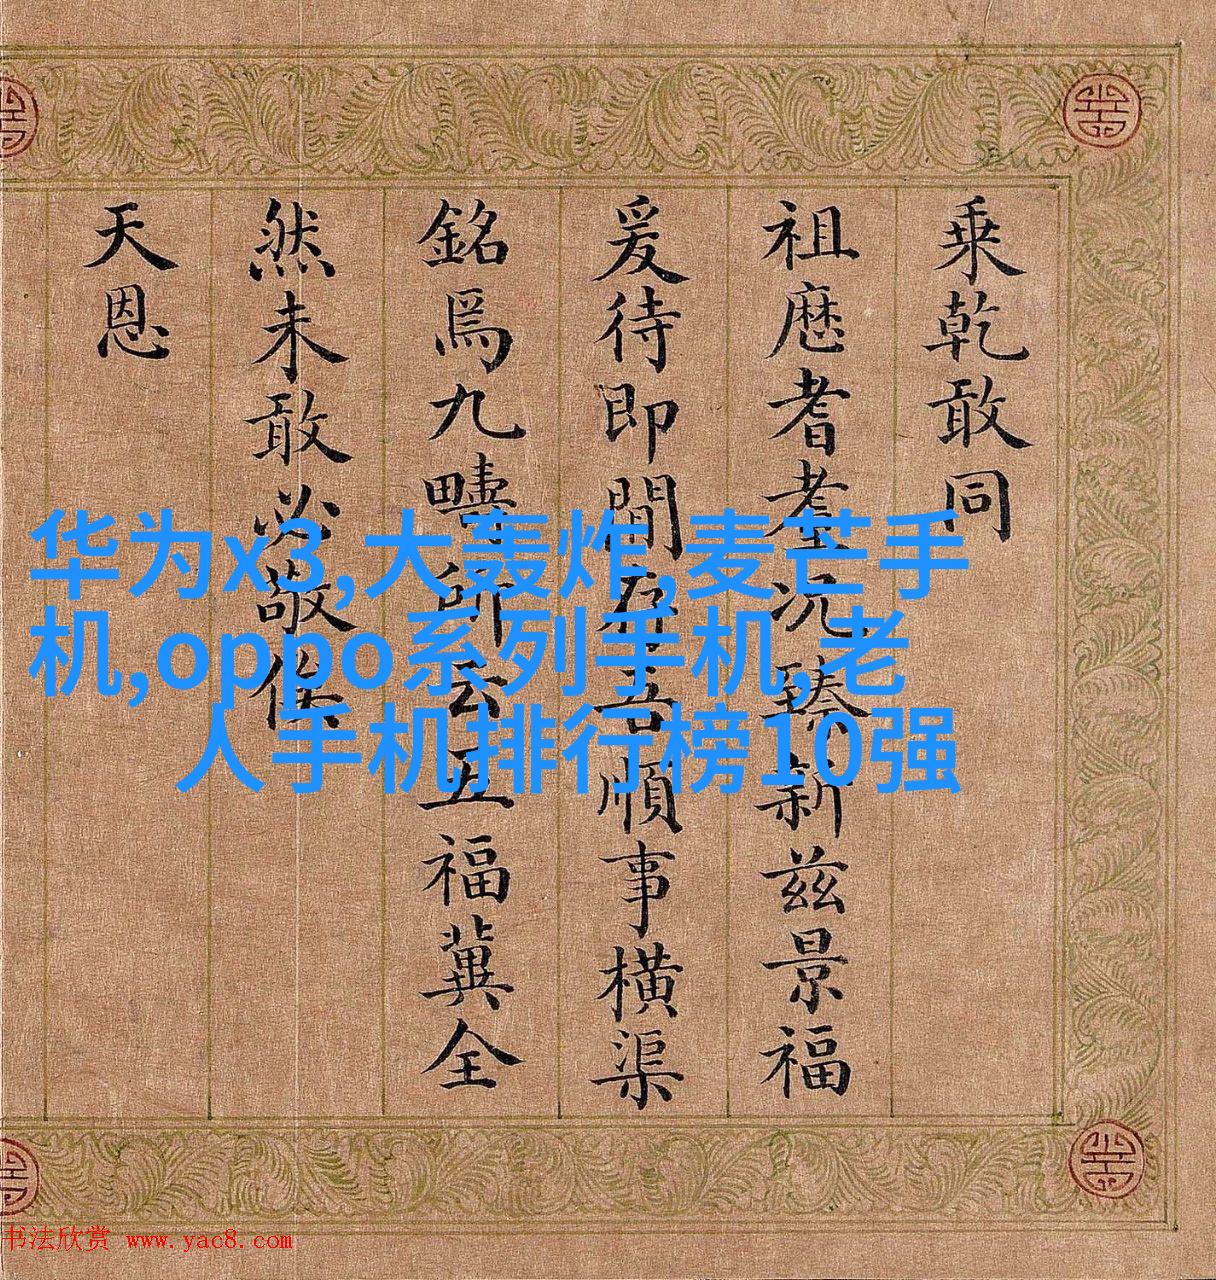 乗乾敢同
祖厯耆耋况臻新兹景福
爰待即間存吾順事横渠
銘爲九疇所云五福冀全
然未敢必敬俟
天恩
华为x3,大轰炸,麦芒手
机,oppo系列手机,老
人手机排行榜10强
书法欣赏 www.yac8.com